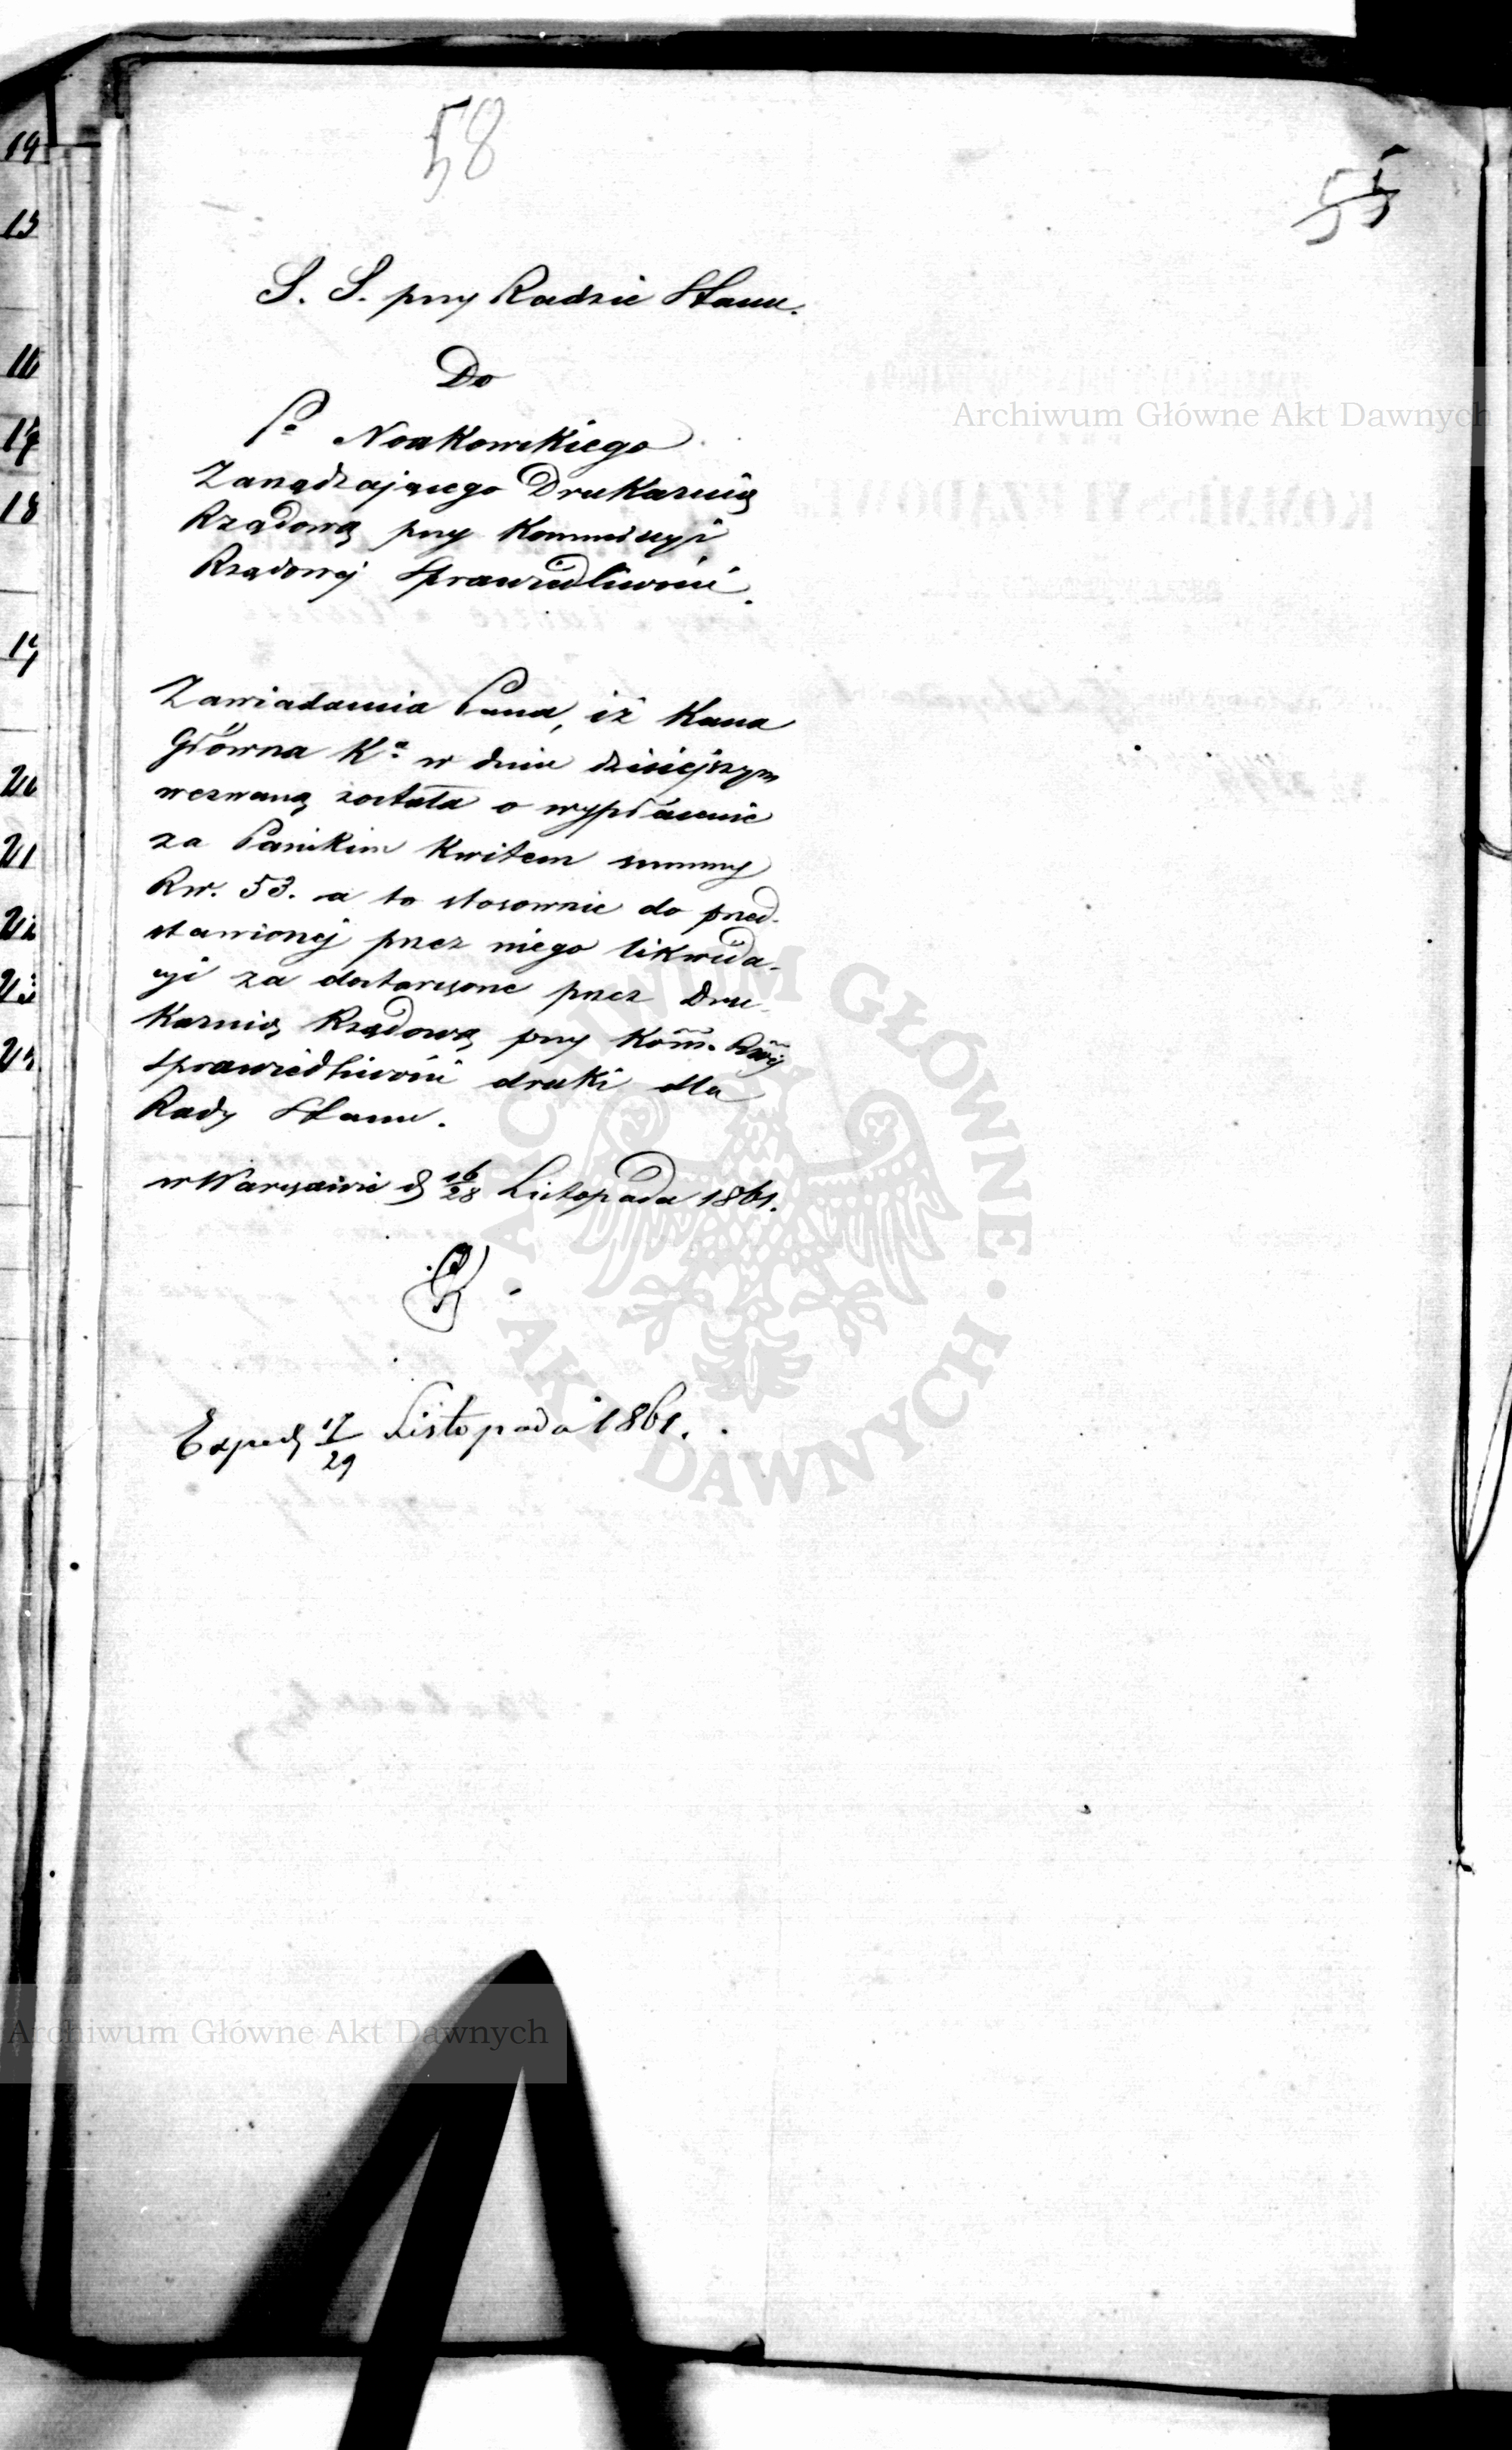 58
55
S. S. przy Radzie Stanu.
Do
Pa Noakowskiego
Zarządzającego Drukarnią
Rządową przy Kommissyi
Rządowej Sprawiedliwości.
Zawiadamia Pana, iż Kassa
Główna Ka w dniu dzisiejszym
wezwaną została o wypłacenie
za Pańskim Kwitem summy
Rsr. 53. a to stosownie do przed-
stawionej przez niego likwida-
cyi za dostarczone przez Dru-
karnią Rządową przy Kom. Rząj
Sprawiedliwości druki dla
Rady Stanu.
w Warszawie d 16/28 Listopada 1861.
Exped 17/29 Listopada 1861.
19
15
16
17
18
19
20
21
22
23
Archiwum Główne Akt Dawnych
ARCHIWUM GŁÓWNE · AKT DAWNYCH ·
Archiwum Główne Akt Dawnych